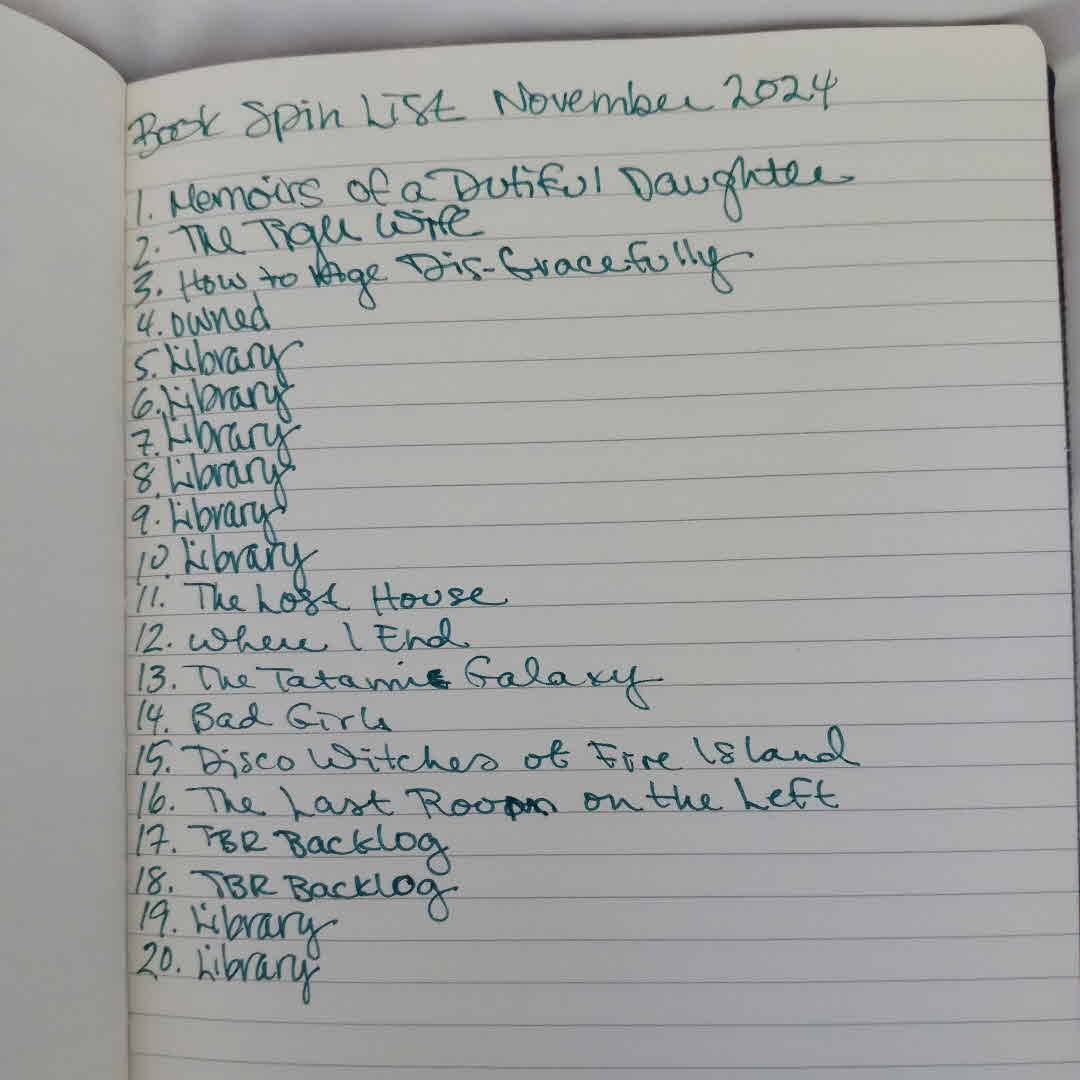 Book Spin List November 2024
1. Memoirs of a Dutiful Daughter
2. The Tiger Wife
3. How to Age Dis-Gracefully
4. owned
5. Library
6. Library
7. Library
8. Library
9. Library
10. Library
11. The Lost House
12. Where I End
13. The Tatami Galaxy
14. Bad Girls
15. Disco Witches of Fire Island
16. The Last Room on the Left
17. TBR Backlog
18. TBR Backlog
19. Library
20. Library